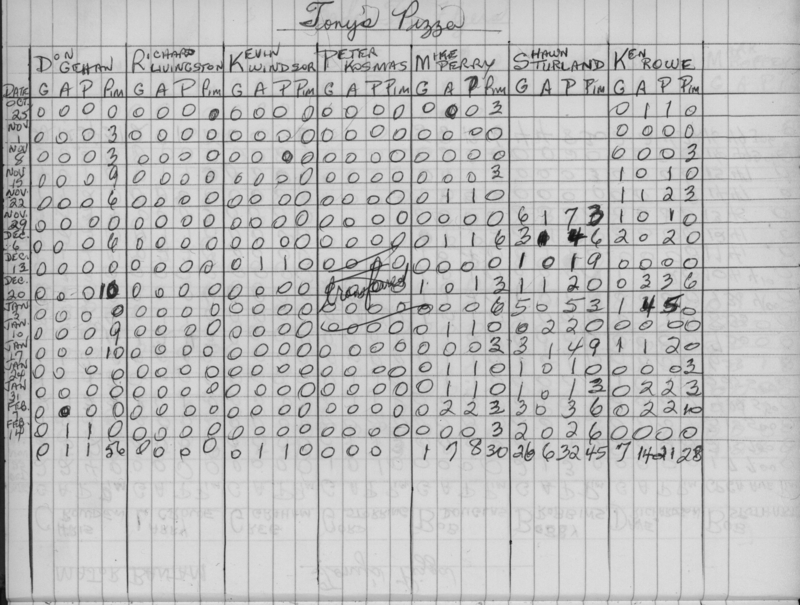 Tony's Pizza
DON GEHAN RICHARD LIVINGSTON KEVIN WINDSOR PETER KOSMAS MIKE PERRY SHAWN STURLAND KEN ROWE
DATE G A P Pim G A P Pim G A P Pim G A P Pim G A P Pim G A P Pim G A P Pim
OCT. 25 0 0 0 0 0 0 0 0 0 0 0 0 0 0 0 0 0 0 0 3 0 1 1 0
NOV 1 0 0 0 3 0 0 0 0 0 0 0 0 0 0 0 0 0 0 0 0 0 0 0 0
NOV 8 0 0 0 3 0 0 0 0 0 0 0 0 0 0 0 0 0 0 0 0 0 0 0 3
NOV 15 0 0 0 9 0 0 0 0 0 0 0 0 0 0 0 0 0 0 0 3 1 0 1 0
NOV. 22 0 0 0 6 0 0 0 0 0 0 0 0 0 0 0 0 0 1 1 0 1 1 2 3
NOV. 29 0 0 0 0 0 0 0 0 0 0 0 0 0 0 0 0 0 0 0 0 6 1 7 3 1 0 1 0
DEC. 6 0 0 0 6 0 0 0 0 0 0 0 0 0 0 0 0 0 1 1 6 3 1 4 6 2 0 2 0
DEC. 13 0 0 0 0 0 0 0 0 0 1 1 0 0 0 0 0 1 0 1 9 0 0 0 0
DEC. 20 0 0 0 10 0 0 0 0 0 0 0 0 1 0 1 3 1 1 2 0 0 3 3 6
JAN 3 0 0 0 0 0 0 0 0 0 0 0 0 0 0 0 6 5 0 5 3 1 4 5 0
JAN 10 0 0 0 9 0 0 0 0 0 0 0 0 0 0 0 0 0 1 1 0 0 2 2 0 0 0 0 0
JAN 17 0 0 0 10 0 0 0 0 0 0 0 0 0 0 0 0 0 0 0 3 3 1 4 9 1 1 2 0
JAN 24 0 0 0 0 0 0 0 0 0 0 0 0 0 0 0 0 0 1 1 0 1 0 1 0 0 0 0 3
JAN 31 0 0 0 0 0 0 0 0 0 0 0 0 0 0 0 0 0 1 1 0 1 0 1 3 0 2 2 3
FEB. 7 0 0 0 0 0 0 0 0 0 0 0 0 0 0 0 0 0 2 2 3 3 0 3 6 0 2 2 10
FEB. 14 0 1 1 0 0 0 0 0 0 0 0 0 0 0 0 0 0 0 0 3 2 0 2 6 0 0 0 0
0 1 1 56 0 0 0 0 0 1 1 0 0 0 0 1 7 8 30 26 6 32 45 7 14 21 28